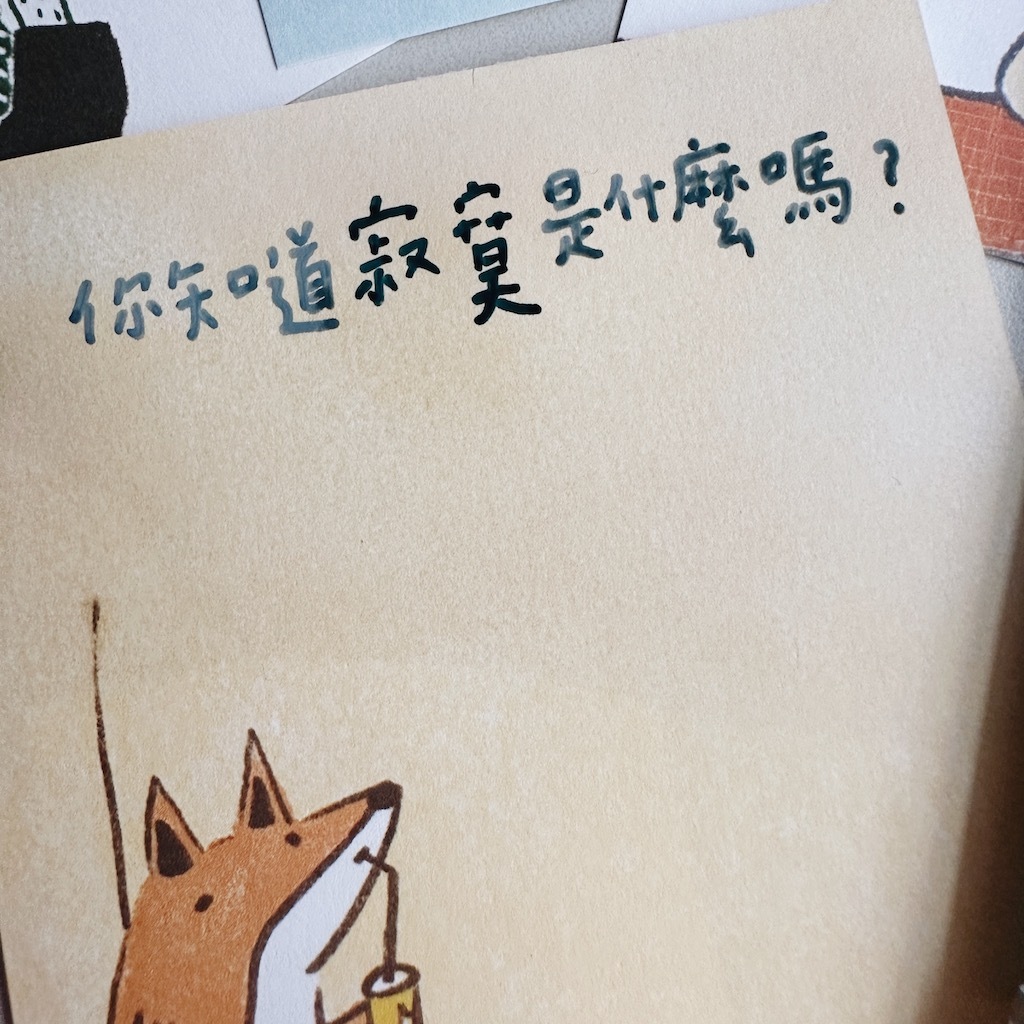 你知道寂寞是什麼嗎？